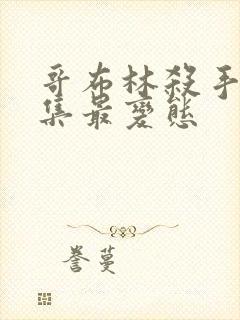 哥布林殺手
集最變態
誉蔓